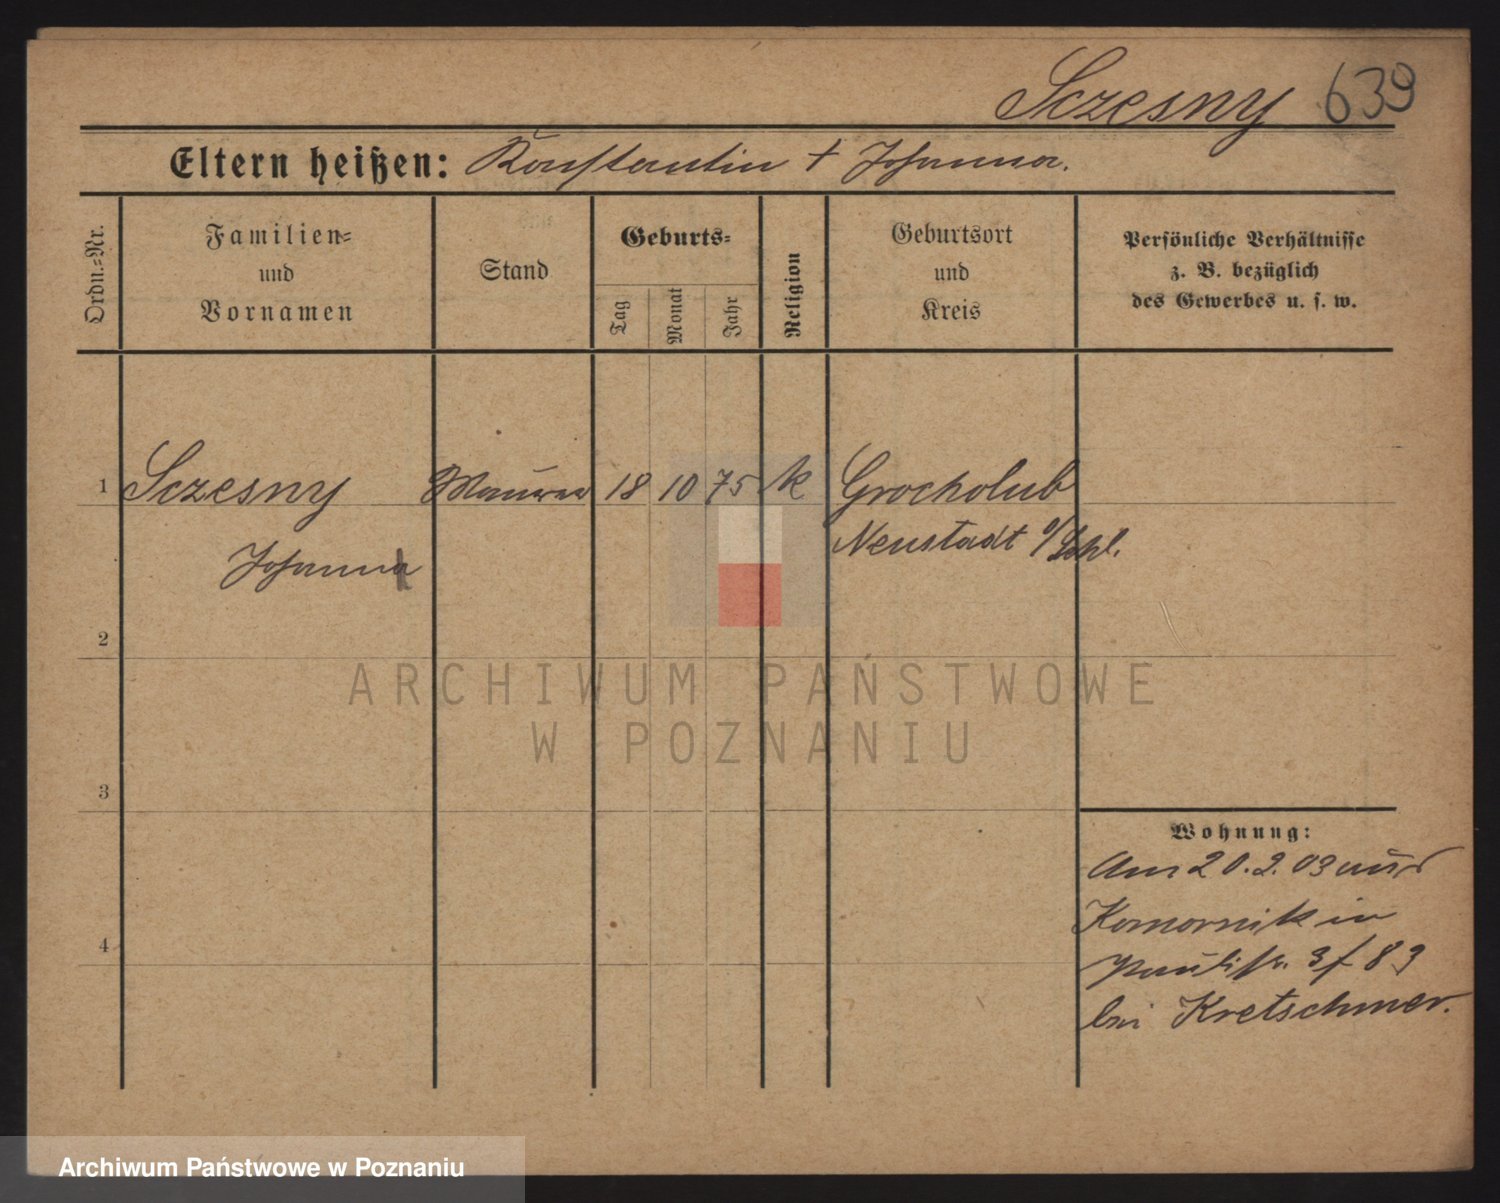 Sczesny 639
Eltern heißen: Konstantin † Johanna.
Ordn.=Nr.
Familien=
und
Vornamen
Stand
Geburts=
Tag
Monat
Jahr
Religion
Geburtsort
und
Kreis
Persönliche Verhältnisse
z. B. bezüglich
des Gewerbes u. s. w.
1 Sczesny Maurer 18 10 75 k Grocholub
Neustadt o/Schl.
Johann
2
3
4
Wohnung:
Am 20.2.03 aus
Komornik in
Paulistr. 3 f 83
bei Kretschmer.
ARCHIWUM PAŃSTWOWE
W POZNANIU
Archiwum Państwowe w Poznaniu